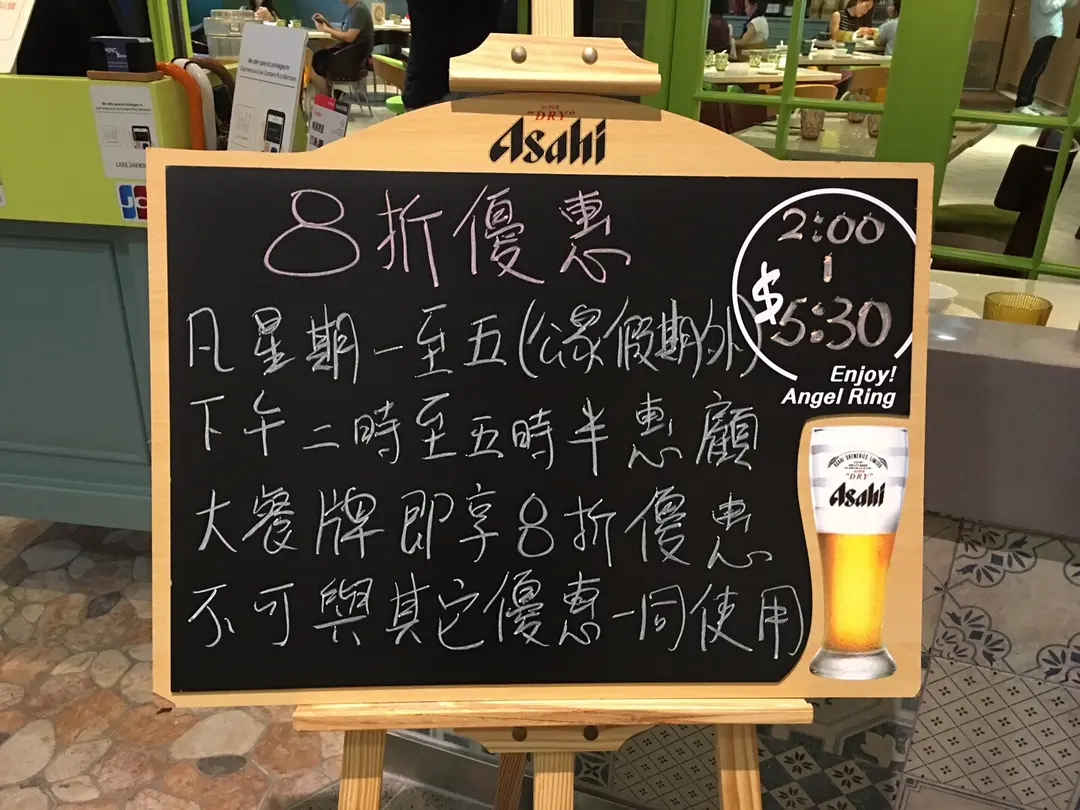 SUPER
"DRY"
Asahi
8折優惠
2:00
|
$5:30
凡星期一至五(公眾假期外)
Enjoy!
Angel Ring
下午二時至五時半惠顧
大餐牌即享8折優惠
不可與其它優惠一同使用
ASAHI BREWERIES LIMITED
SUPER
"DRY"
Asahi
We offer special privileges to